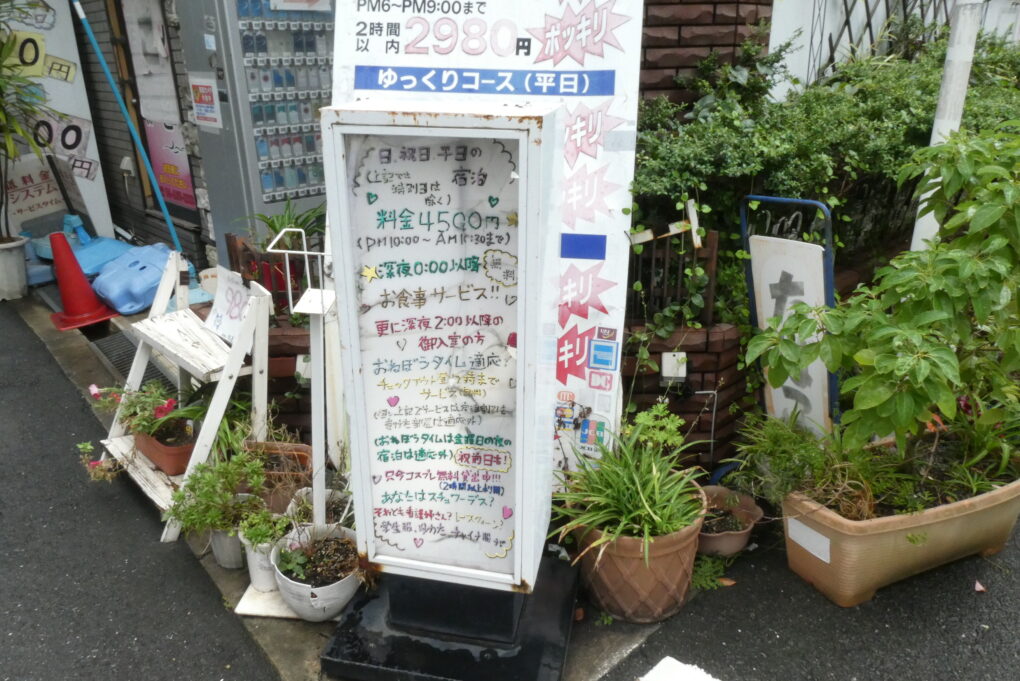 PM6~PM9:00まで
2時間以内2980円
ポッキリ
ゆっくりコース(平日)
キリ
キリ
キリ
キリ
0円
00円
無料金
システム
サービスタイム
日、祝日、平日の
(上記では 宿泊
特別日は
除く)
料金4500円
(PM10:00~AM11:30まで)
深夜0:00以降 無料
お食事サービス!!
更に深夜2:00以降の
御入室の方
おねぼうタイム適応?
サービス
(おねぼうタイムは金曜日の夜の
宿泊は適応外)(祝前日も!)
只今コスプレ無料貸出中!!!
(2時間以上より)
あなたはスチュワーデス?
それとも看護婦さん?
学生服、ゆかた、チャイナ服
980
たつ